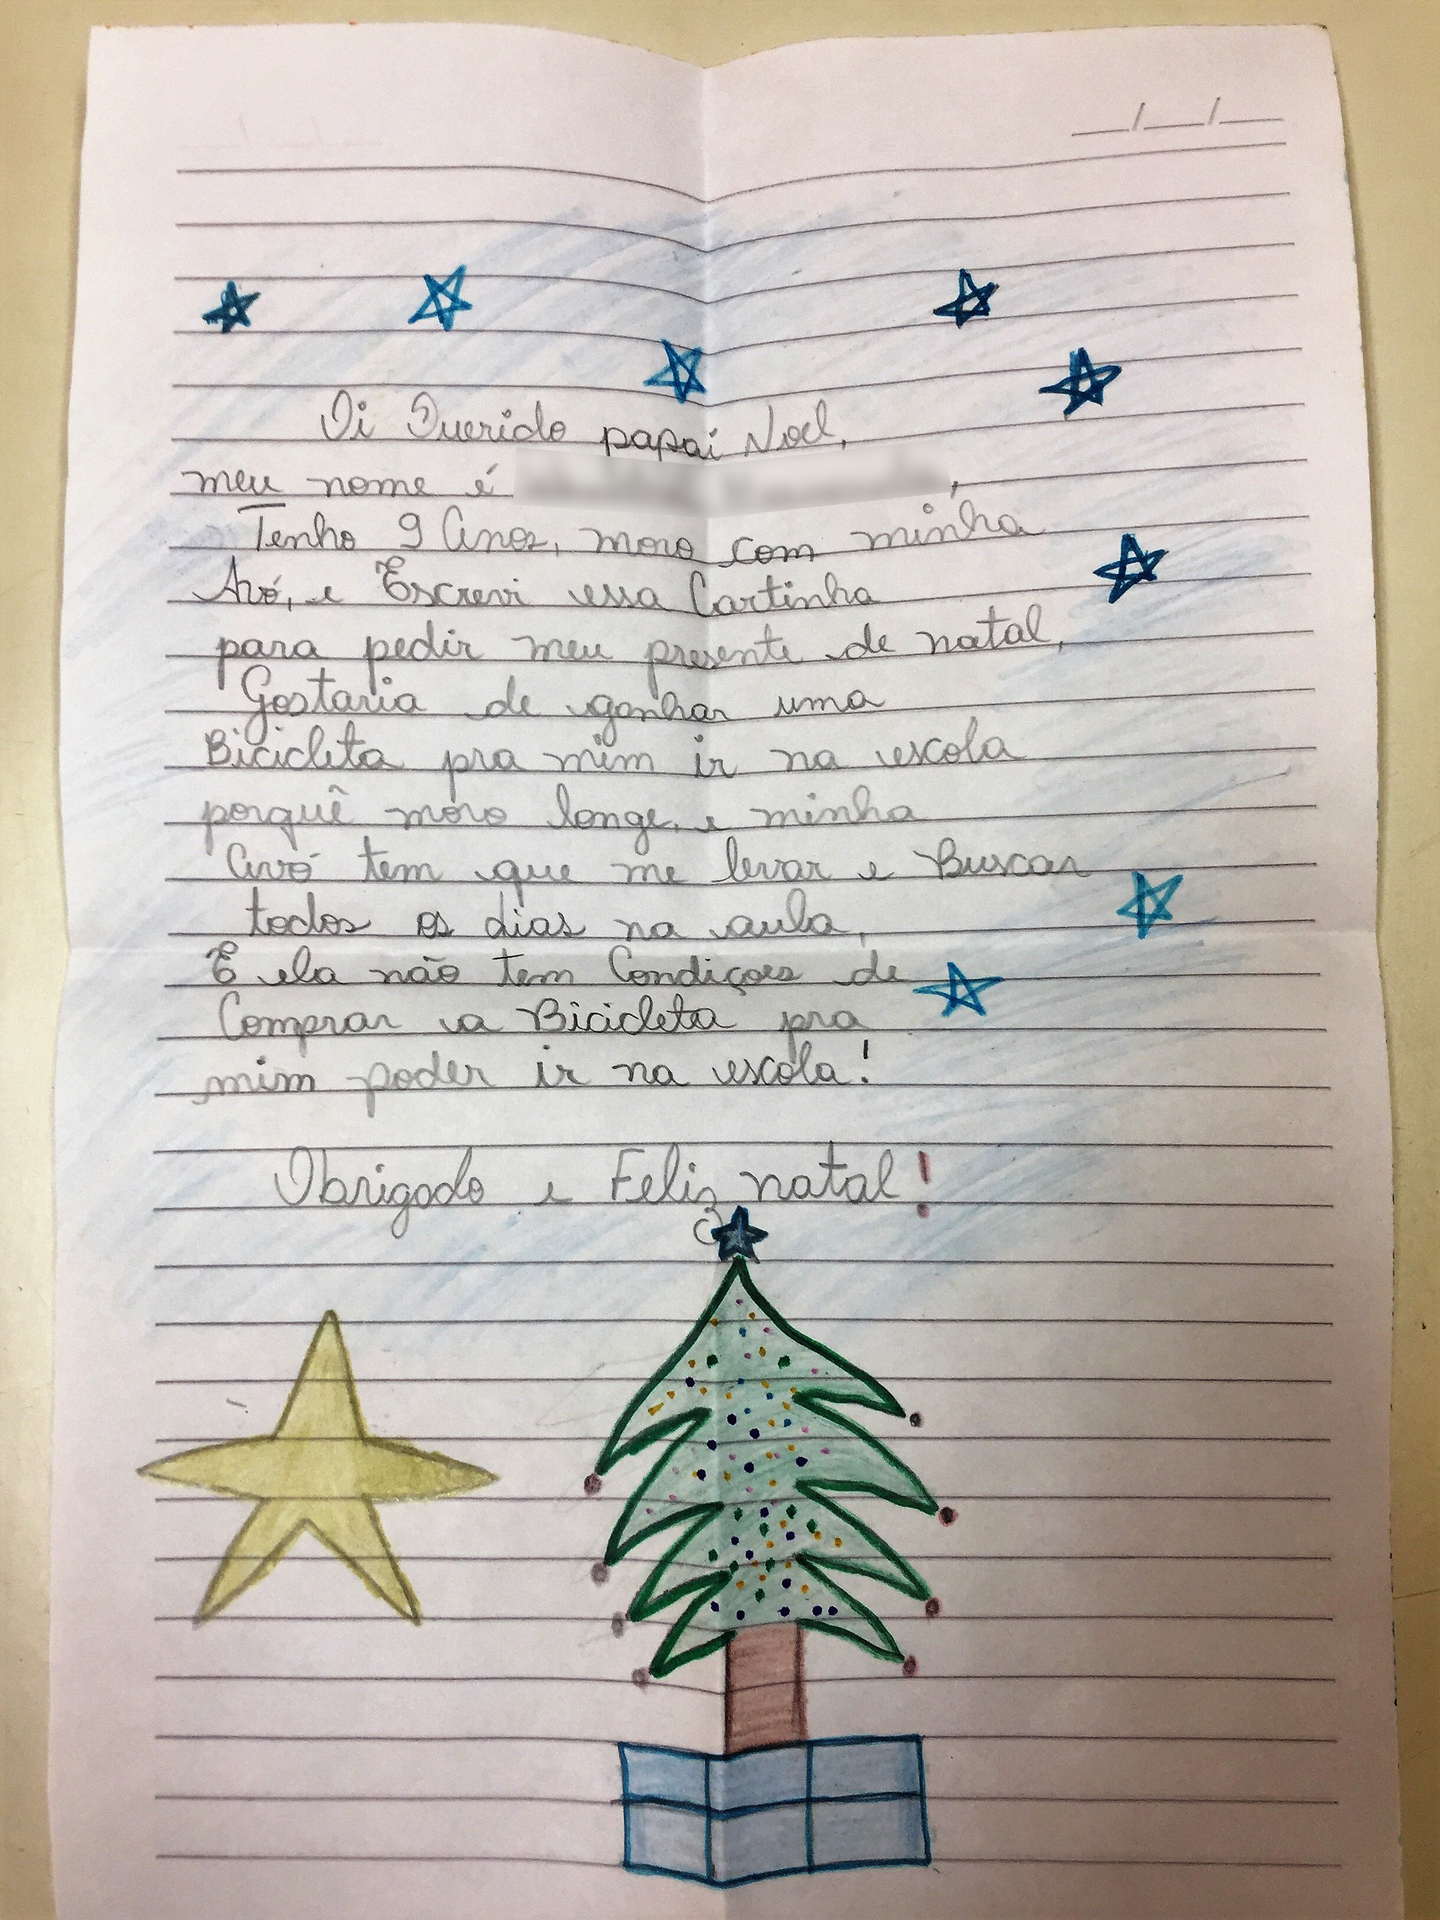 Oi Querido papai Noel,
meu nome é
Tenho 9 Anos, moro com minha
Avó, e Escrevi essa Cartinha
para pedir meu presente de natal,
Gostaria de ganhar uma
Bicicleta pra mim ir na escola
porquê moro longe, e minha
avó tem que me levar e Buscar
todos os dias na aula,
E ela não tem Condiçoes de
Comprar a Bicicleta pra
mim poder ir na escola!
Obrigado e Feliz natal!